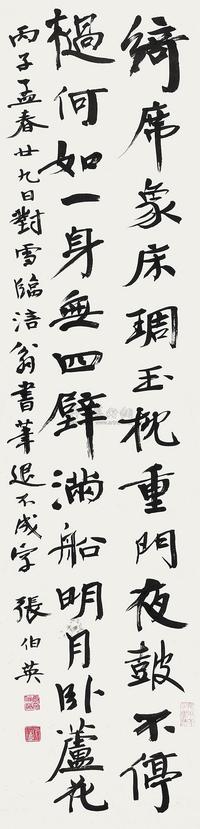 綺席象床琱玉枕重門夜鼓不停
檛何如一身無四壁滿船明月臥蘆花
丙子孟春廿九日對雪臨涪翁書筆退不成字 張伯英